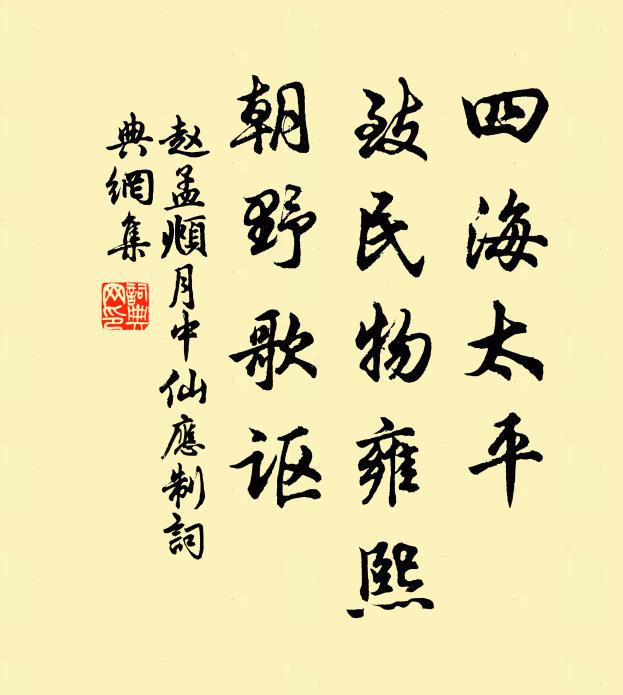 四海太平
致民物雍熙
朝野歌讴
赵孟頫月中仙應制詞
典網集
詞典网印